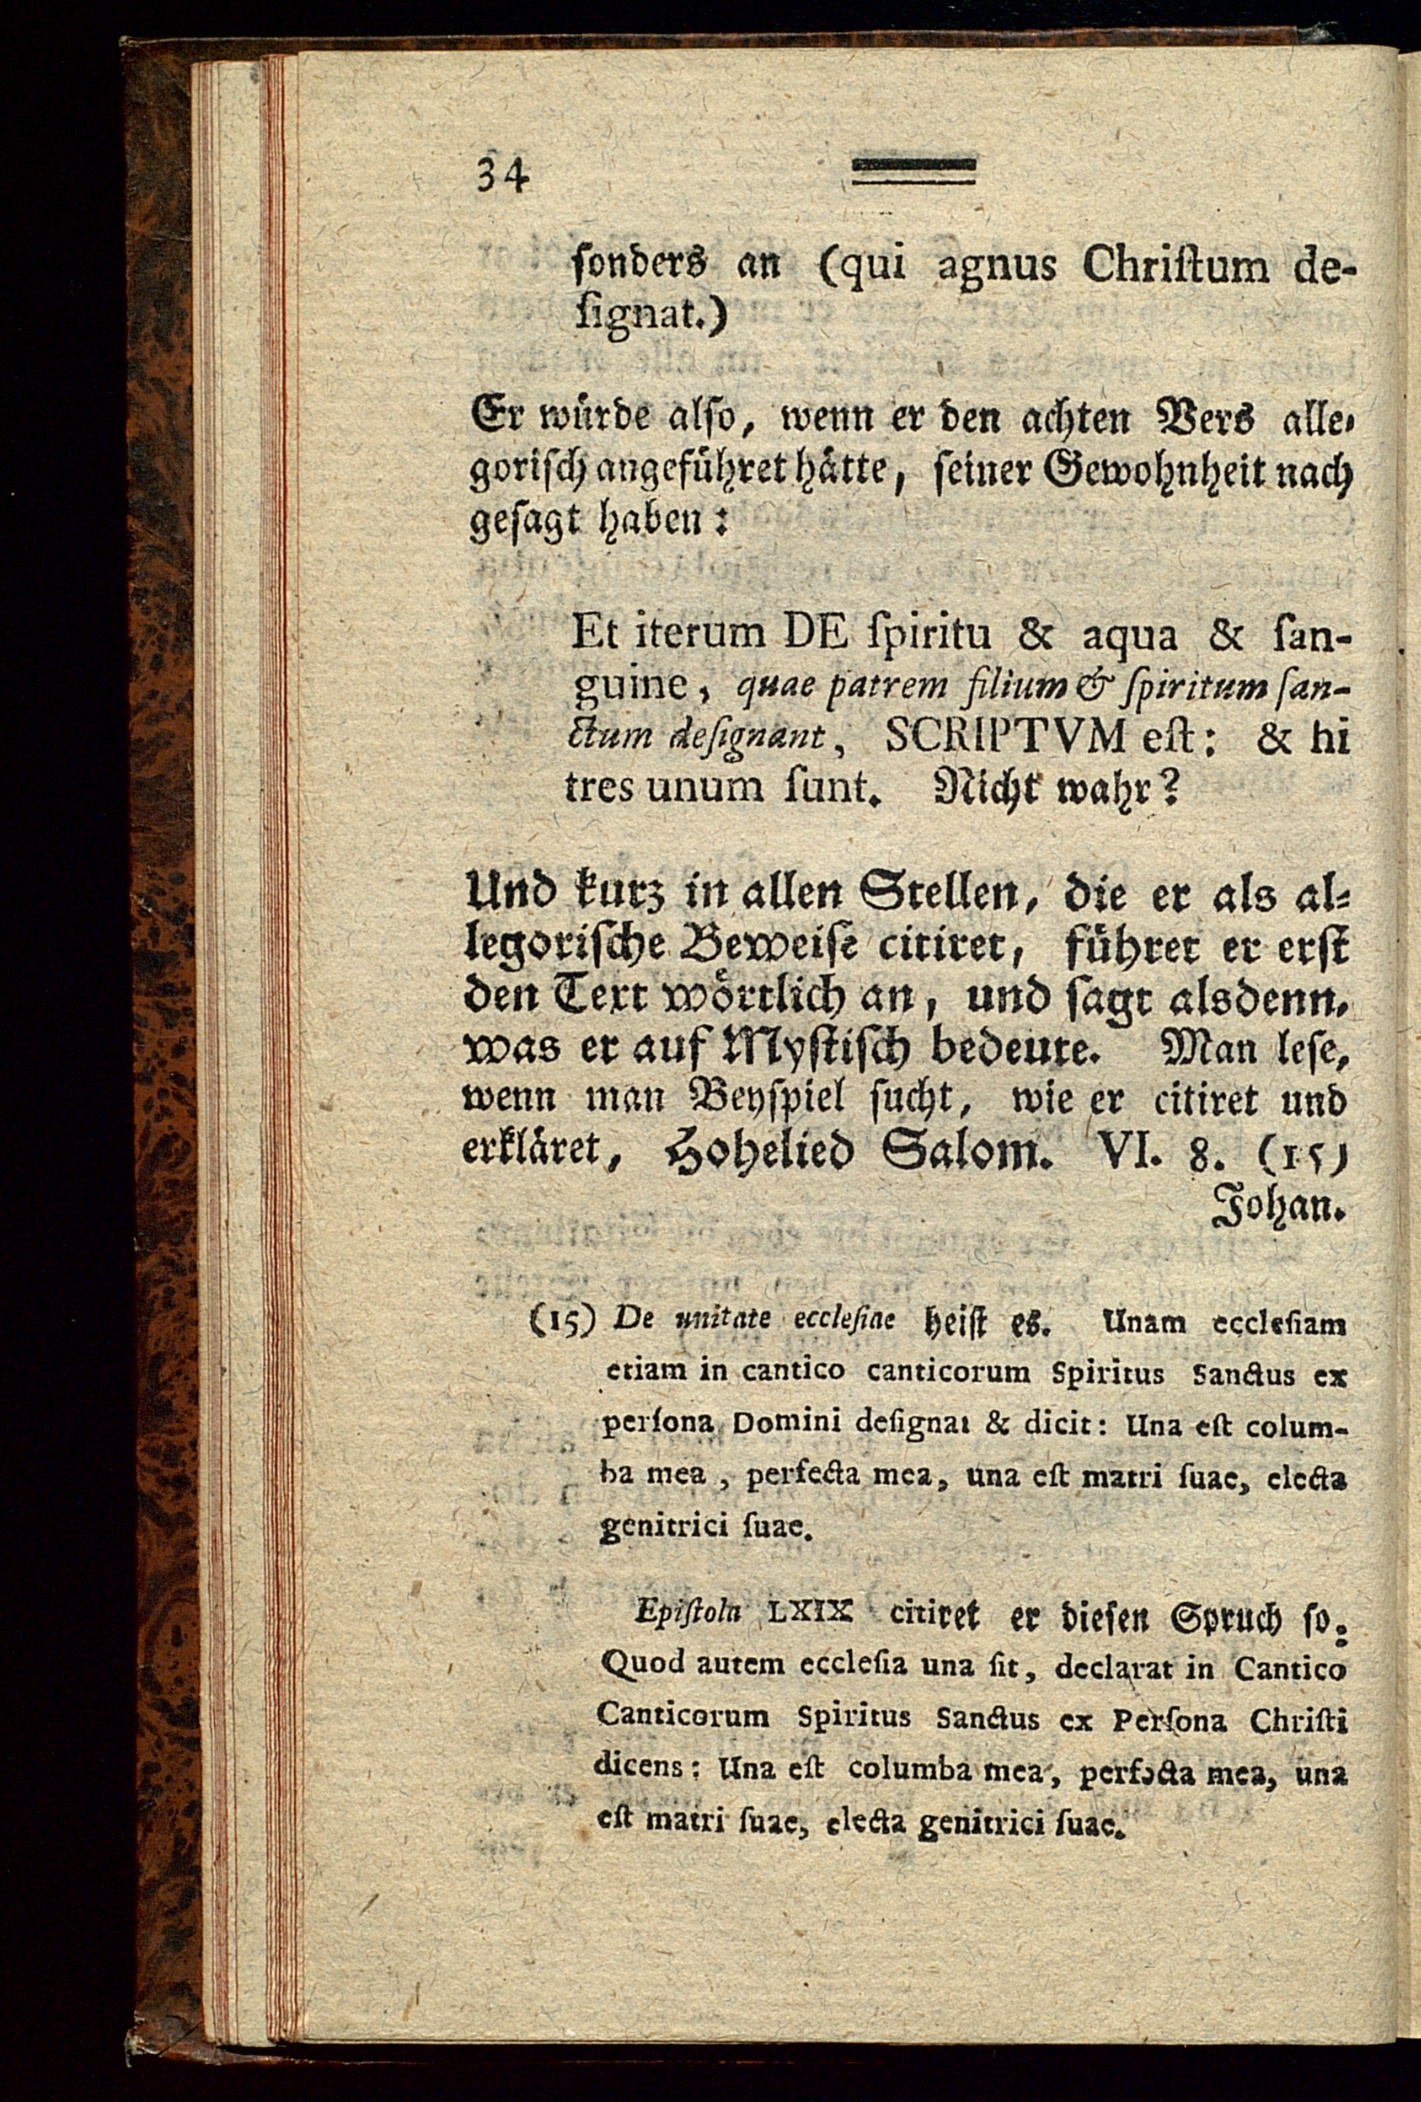 34
sonders an (qui agnus Chriſtum de-
ſignat.)
Er würde alſo, wenn er den achten Vers alle-
goriſch angeführet hätte, ſeiner Gewohnheit nach
geſagt haben:
Et iterum DE ſpiritu & aqua & ſan-
guine, quae patrem filium & ſpiritum ſan-
ctum deſignant, SCRIPTVM eſt: & hi
tres unum ſunt. Nicht wahr?
Und kurz in allen Stellen, die er als al-
legoriſche Beweiſe citiret, führet er erſt
den Text wörtlich an, und ſagt alsdenn,
was er auf Myſtiſch bedeute. Man leſe,
wenn man Beyſpiel ſucht, wie er citiret und
erkläret, Hohelied Salom. VI. 8. (15)
Johan.
(15) De unitate eccleſiae heiſt es. Unam eccleſiam
etiam in cantico canticorum Spiritus Sanctus ex
perſona Domini deſignat & dicit: Una eſt colum-
ba mea, perfecta mea, una eſt matri ſuae, electa
genitrici ſuae.
Epiſtola LXIX citiret er dieſen Spruch ſo:
Quod autem eccleſia una ſit, declarat in Cantico
Canticorum Spiritus Sanctus ex Perſona Chriſti
dicens: Una eſt columba mea, perfecta mea, una
eſt matri ſuae, electa genitrici ſuae.